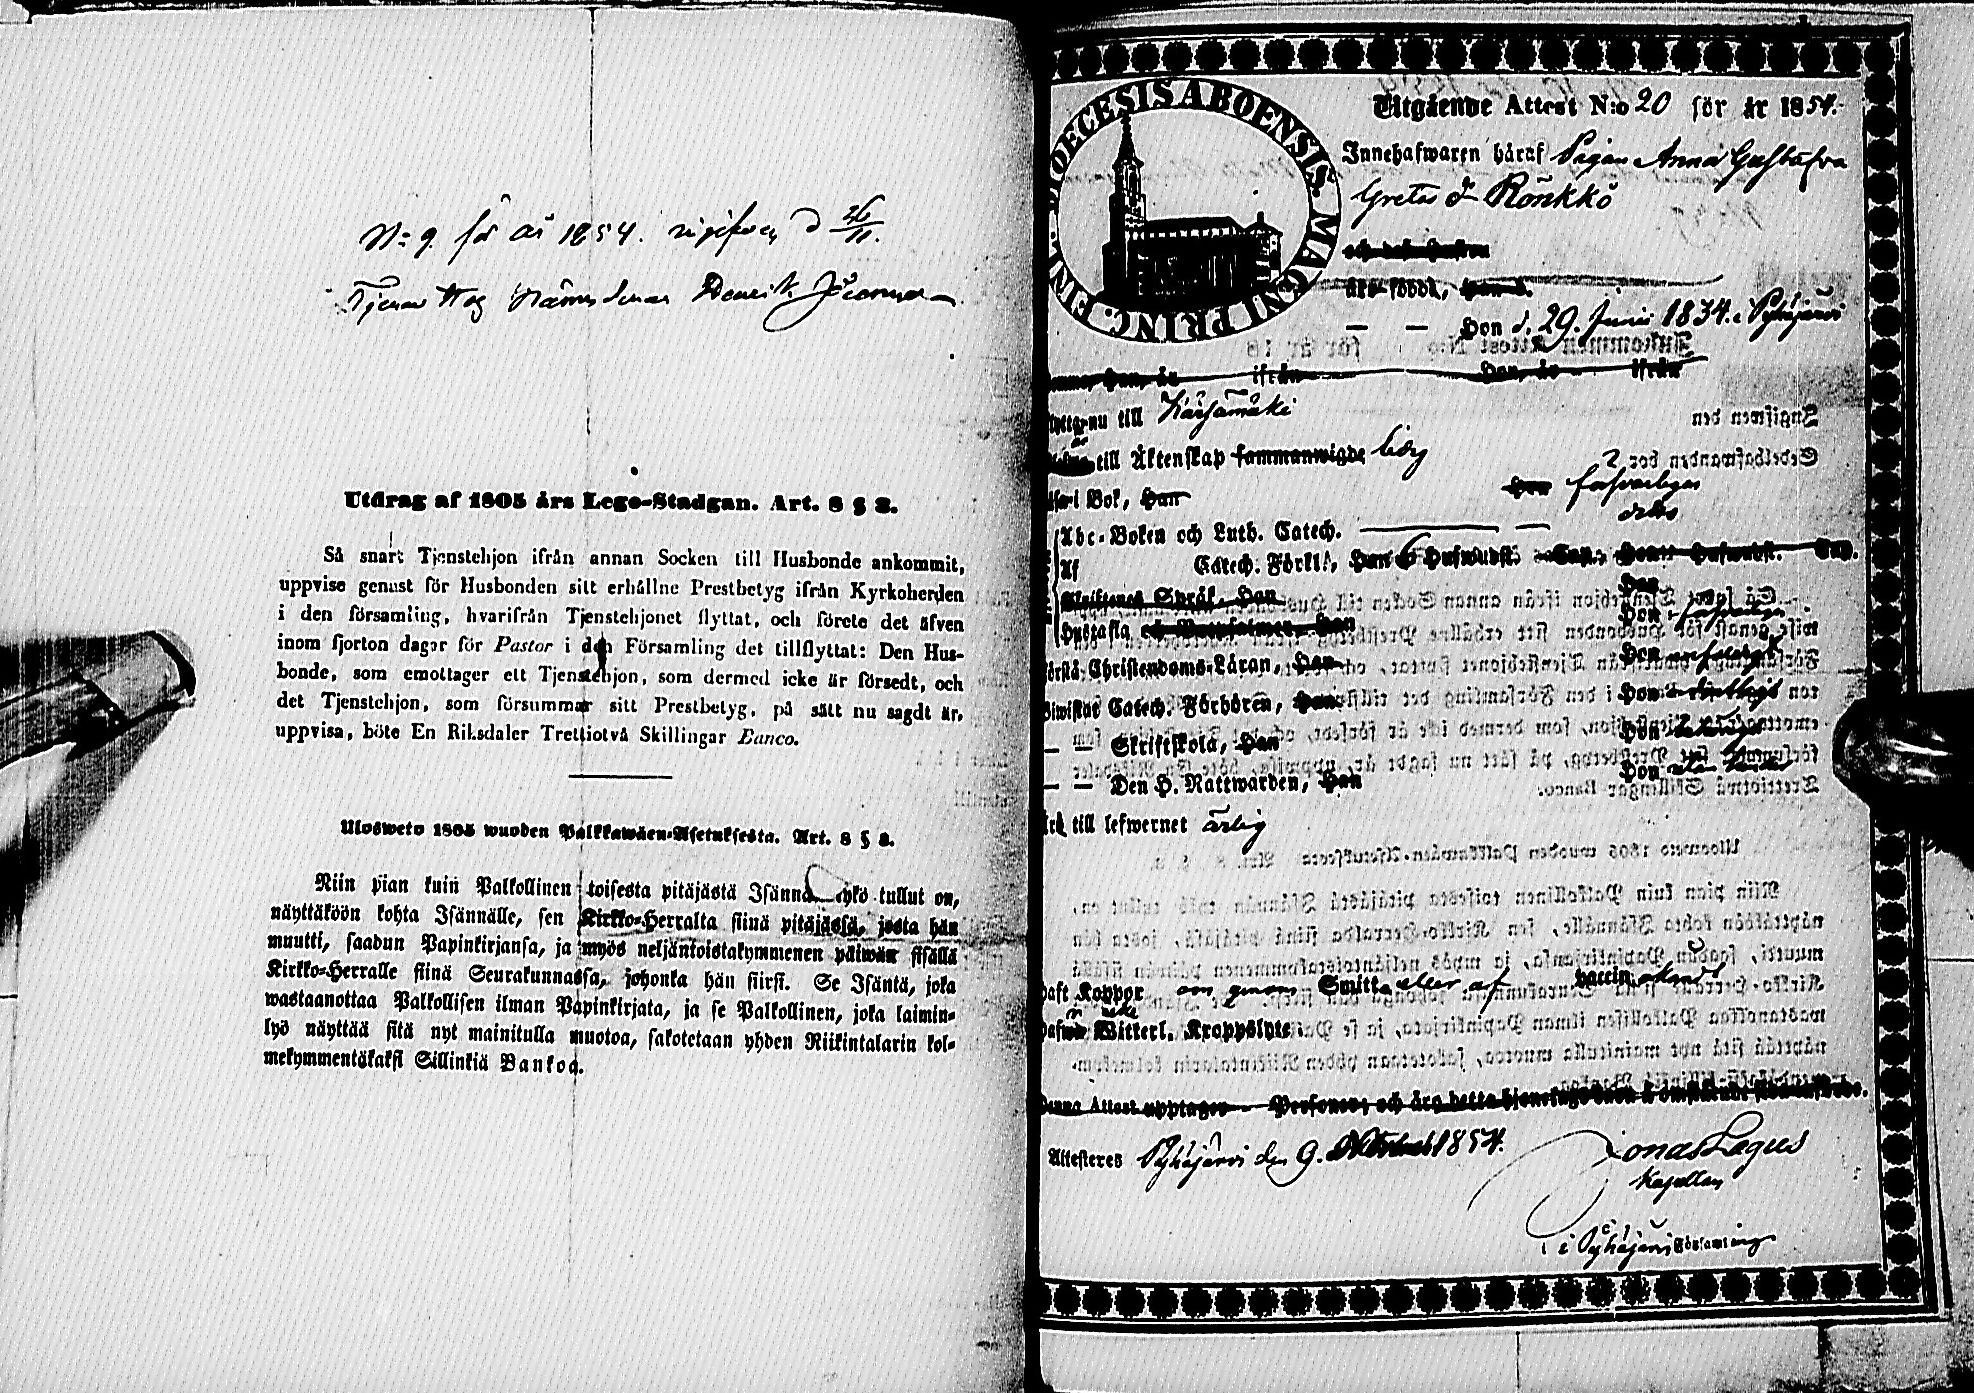 N:o 9. för år 1854. ingifven d 26/11.
Tjenar hos Nämndeman Henrik
Utdrag af 1805 års Lego-Stadgan. Art. 8 § 2.
Så snart Tjenstehjon ifrån annan Socken till Husbonde ankommit,
uppvise genast för Husbonden sitt erhållne Prestbetyg ifrån Kyrkoherden
i den församling, hvarifrån Tjenstehjonet flyttat, och förete det äfven
inom fjorton dagar för Pastor i den Församling det tillflyttat: Den Hus-
bonde, som emottager ett Tjenstehjon, som dermed icke är försedt, och
det Tjenstehjon, som försummar sitt Prestbetyg, på sätt nu sagdt är,
uppvisa, böte En Riksdaler Trettiotvå Skillingar Banco.
Ulosweto 1805 wuoden Palkkawäen-Asetuksesta. Art. 8 § 2.
Niin pian kuin Palkollinen toisesta pitäjästä Isännän tykö tullut on,
näyttäköön kohta Isännälle, sen Kirkko-Herralta siinä pitäjässä, josta hän
muutti, saadun Papinkirjansa, ja myös neljäntoistakymmenen päiwän sisällä
Kirkko-Herralle siinä Seurakunnassa, johonka hän siirsi. Se Isäntä, joka
wastaanottaa Palkollisen ilman Papinkirjata, ja se Palkollinen, joka laimin-
lyö näyttää sitä nyt mainitulla muotoa, sakotetaan yhden Riikintalarin kol-
mekymmentäkaksi Sillinkiä Bankoa.
DIOECESIS ABOENSIS. MAGNI PRINC. FINL.
Utgående Attest N:o 20 för år 1854.
Innehafwaren häraf Pigan Anna Gustafva
Greta d:r Rönkkö
äro födde, Han d.
— — Hon d. 29. Junii 1834. i Pyhäjärvi
Han, år ifrån Hon, år ifrån
nu till Kärsämäki
är till Äktenskap sammanwigde ledig
i Bok, Han Hon försvarligen
Abc-Boken och Luth. Catech.
Af Catech. Förkl., Han 6 Hufwudst. Cap., Hon Hufwudst. Cap.
Skriftenes Språk, Han Hon
Hustafla och Han Hon försvarligen
Christendoms-Läran, Han Hon
Biwistat Catech. Förhören, Han Hon
— — Skriftskola, Han Hon
— — Den H. Nattwarden, Han Hon
till lefwernet ärlig
Haft Koppor om genom Smitta eller af vaccin okändt
Wittert. Kroppslyte
Denna Attest upptager Personer,
Attesteres Pyhäjärvi den 9. 1854.
Jonas Lagus
Kapellan
i Pyhäjärvi Församling